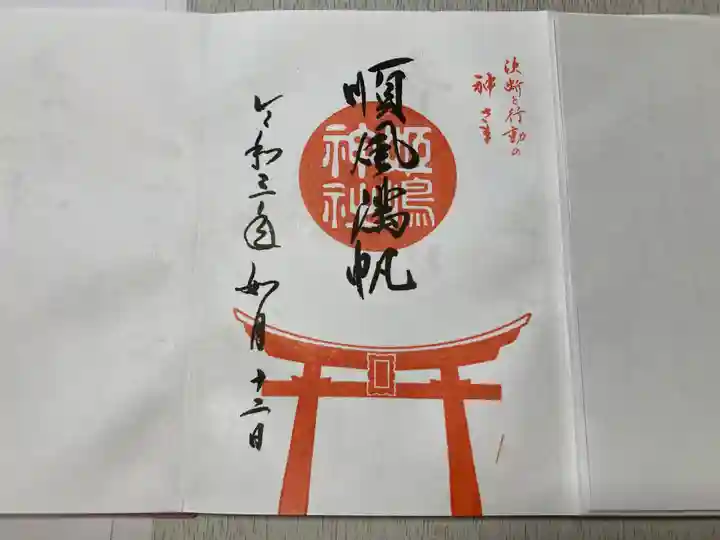 決断と行動の
神さま
順風満帆
姫嶋
神社
令和三年如月十二日